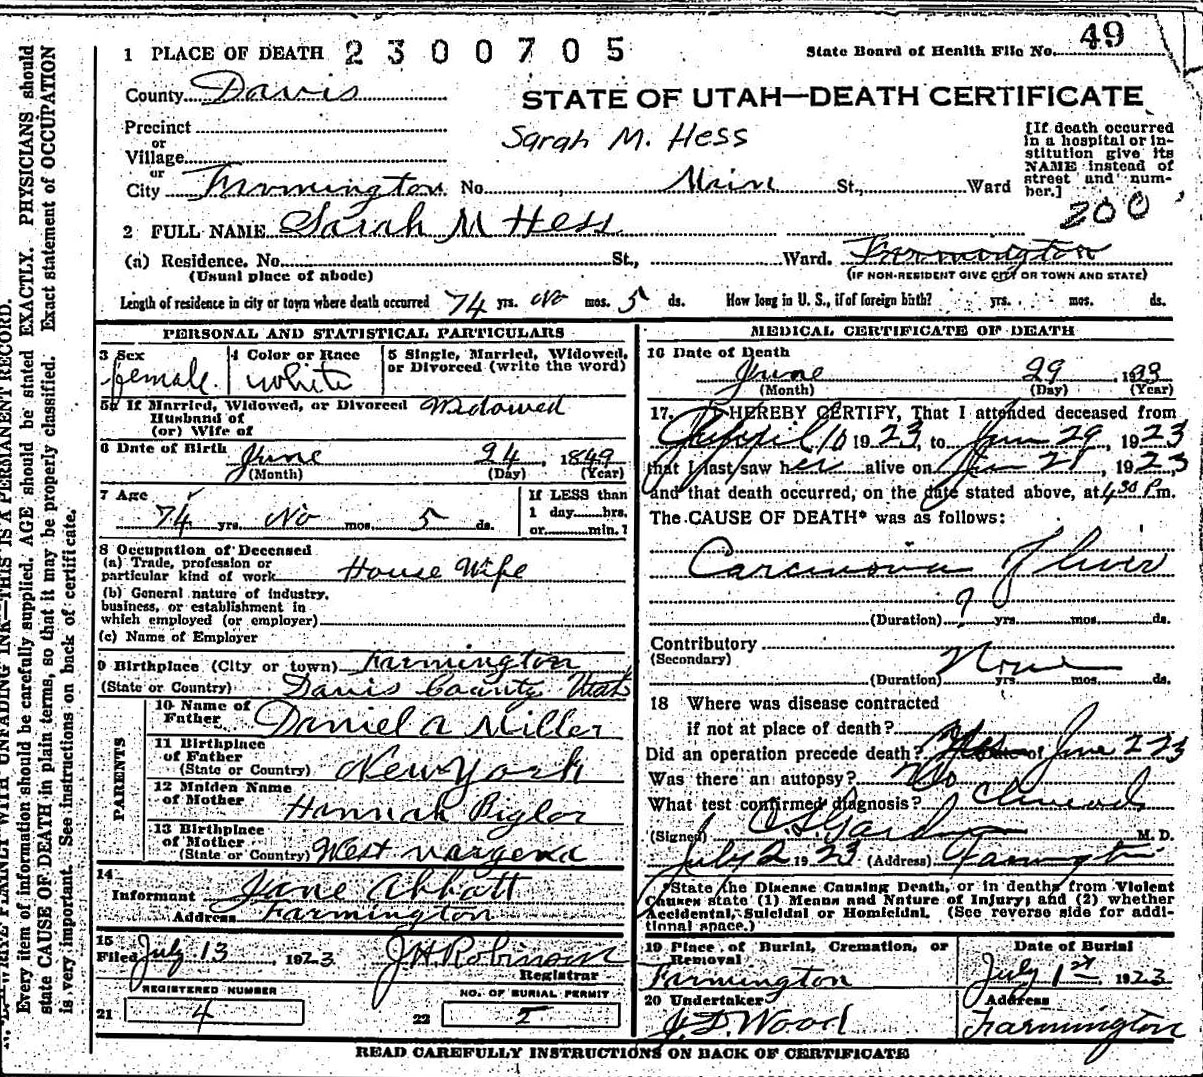 1 PLACE OF DEATH 2300705 State Board of Health File No. 49
County Davis
STATE OF UTAH—DEATH CERTIFICATE
Precinct
or
Village
or
Sarah M. Hess
[If death occurred
in a hospital or in-
stitution give its
NAME instead of
street and num-
ber.]
City Farmington No. , Main St., Ward
200
2 FULL NAME Sarah M Hess
(a) Residence. No. St., Ward. Farmington
(Usual place of abode) (IF NON-RESIDENT GIVE CITY OR TOWN AND STATE)
Length of residence in city or town where death occurred 74 yrs. No mos. 5 ds. How long in U. S., if of foreign birth? yrs. mos. ds.
PERSONAL AND STATISTICAL PARTICULARS
3 Sex 4 Color or Race 5 Single, Married, Widowed,
or Divorced (write the word)
female. white
5a If Married, Widowed, or Divorced Widowed
Husband of
(or) Wife of
6 Date of Birth June 24, 1849
(Month) (Day) (Year)
7 Age If LESS than
1 day hrs.
74 yrs. No mos. 5 ds. or min.?
8 Occupation of Deceased
(a) Trade, profession or
particular kind of work House Wife
(b) General nature of industry,
business, or establishment in
which employed (or employer)
(c) Name of Employer
9 Birthplace (City or town) Farmington
(State or Country) Davis County Utah
PARENTS
10 Name of
Father Daniel A Miller
11 Birthplace
of Father
(State or Country) New York
12 Maiden Name
of Mother Hannah Bigler
13 Birthplace
of Mother
(State or Country) West Vargena
14
Informant Jane Abbott
Address Farmington
15
Filed July 13, 1923 J H Robinson
Registrar
REGISTERED NUMBER NO. OF BURIAL PERMIT
21 4 22 5
MEDICAL CERTIFICATE OF DEATH
16 Date of Death
June 29, 1923
(Month) (Day) (Year)
17. I HEREBY CERTIFY, That I attended deceased from
April 10 1923, to June 29, 1923
that I last saw her alive on , 1923,
and that death occurred, on the date stated above, at 4:30 P.m.
The CAUSE OF DEATH* was as follows:
Carcinoma of liver
? (Duration) yrs. mos. ds.
Contributory
(Secondary) None
(Duration) yrs. mos. ds.
18 Where was disease contracted
if not at place of death?
Did an operation precede death? Yes Date of June 2 23
Was there an autopsy? No
What test confirmed diagnosis?
(Signed) M. D.
July 2 1923 (Address) Farmington
*State the Disease Causing Death, or in deaths from Violent
Causes state (1) Means and Nature of Injury; and (2) whether
Accidental, Suicidal or Homicidal. (See reverse side for addi-
tional space.)
19 Place of Burial, Cremation, or
Removal
Farmington
Date of Burial
July 1st 1923
20 Undertaker
J. D. Wood
Address
Farmington
READ CAREFULLY INSTRUCTIONS ON BACK OF CERTIFICATE
WRITE PLAINLY WITH UNFADING INK—THIS IS A PERMANENT RECORD.
Every item of information should be carefully supplied. AGE should be stated EXACTLY. PHYSICIANS should
state CAUSE OF DEATH in plain terms, so that it may be properly classified. Exact statement of OCCUPATION
is very important. See instructions on back of certificate.